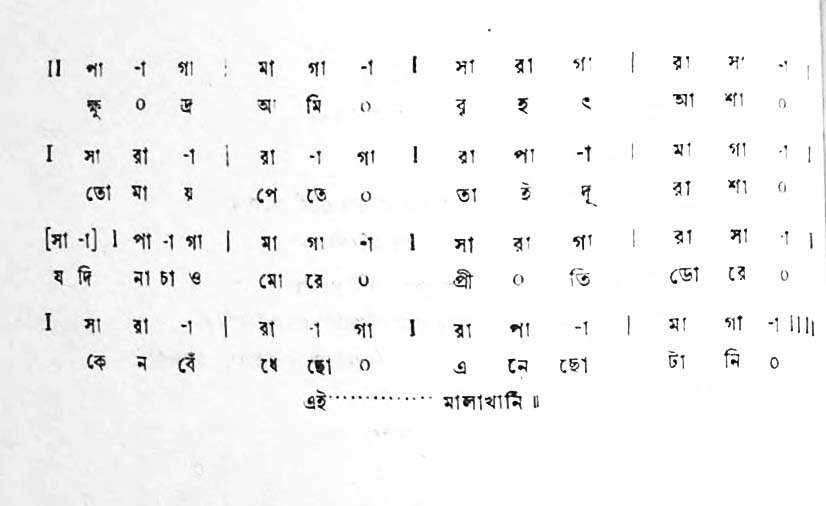 II পা -া গা | মা গা -া I সা রা গা | রা সা -া |
ক্ষু ০ দ্র আ মি ০ বৃ হ ৎ আ শা ০
I সা রা -া | রা -া গা I রা পা -া | মা গা -া |
তো মা য় পে তে ০ তা ই দূ রা শা ০
[সা -া] I পা -া গা | মা গা -া I সা রা গা | রা সা -া |
য দি না চা ও মো রে ০ প্রী ০ তি ডো রে ০
I সা রা -া | রা -া গা I রা পা -া | মা গা -া IIII
কে ন বেঁ ধে ছো ০ এ নে ছো টা নি ০
এই·············· মালাখানি ॥